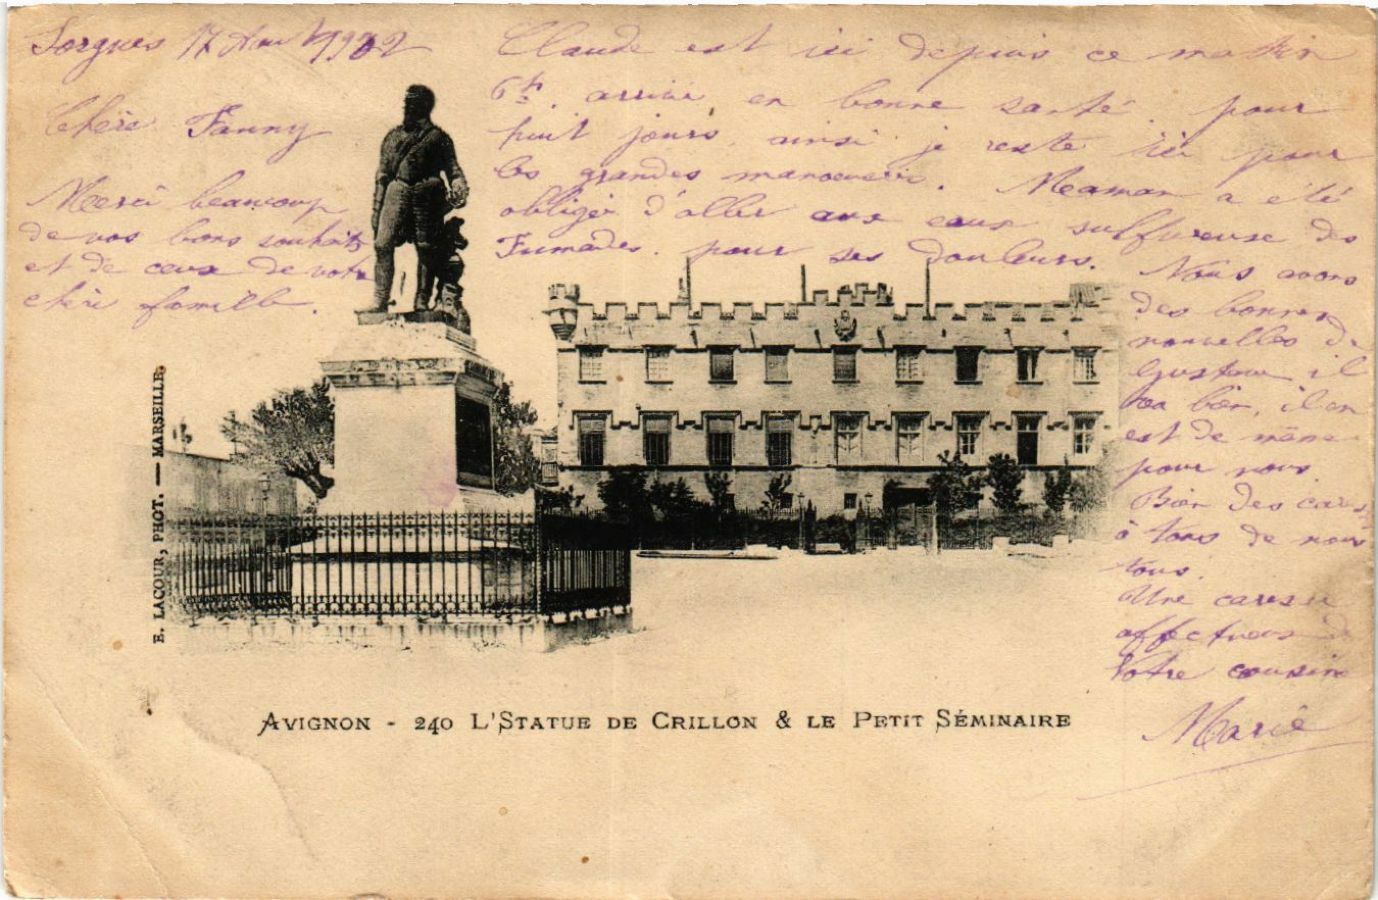 Sorgues 17 Aout 1902
Chère Fanny
Merci beaucoup
de vos bons souhaits
et de ceux de votre
chère famille.
Claude est ici depuis ce matin
6h. arrivé en bonne santé. pour
huit jours, ainsi je reste ici pour
les grandes manoeuvre. Maman a été
obligée d'aller aux eaux sulfureuse des
Fumades. pour ses douleurs.
Nous avons
des bonnes
nouvelles de
Gustave, il
va bien, il en
est de même
pour nous
Bien des
à tous de nous
tous.
Une caresse
affectueus de
Votre cousine
Marie
E. LACOUR, PHOT. — MARSEILLE.
AVIGNON - 240 L'STATUE DE CRILLON & LE PETIT SÉMINAIRE